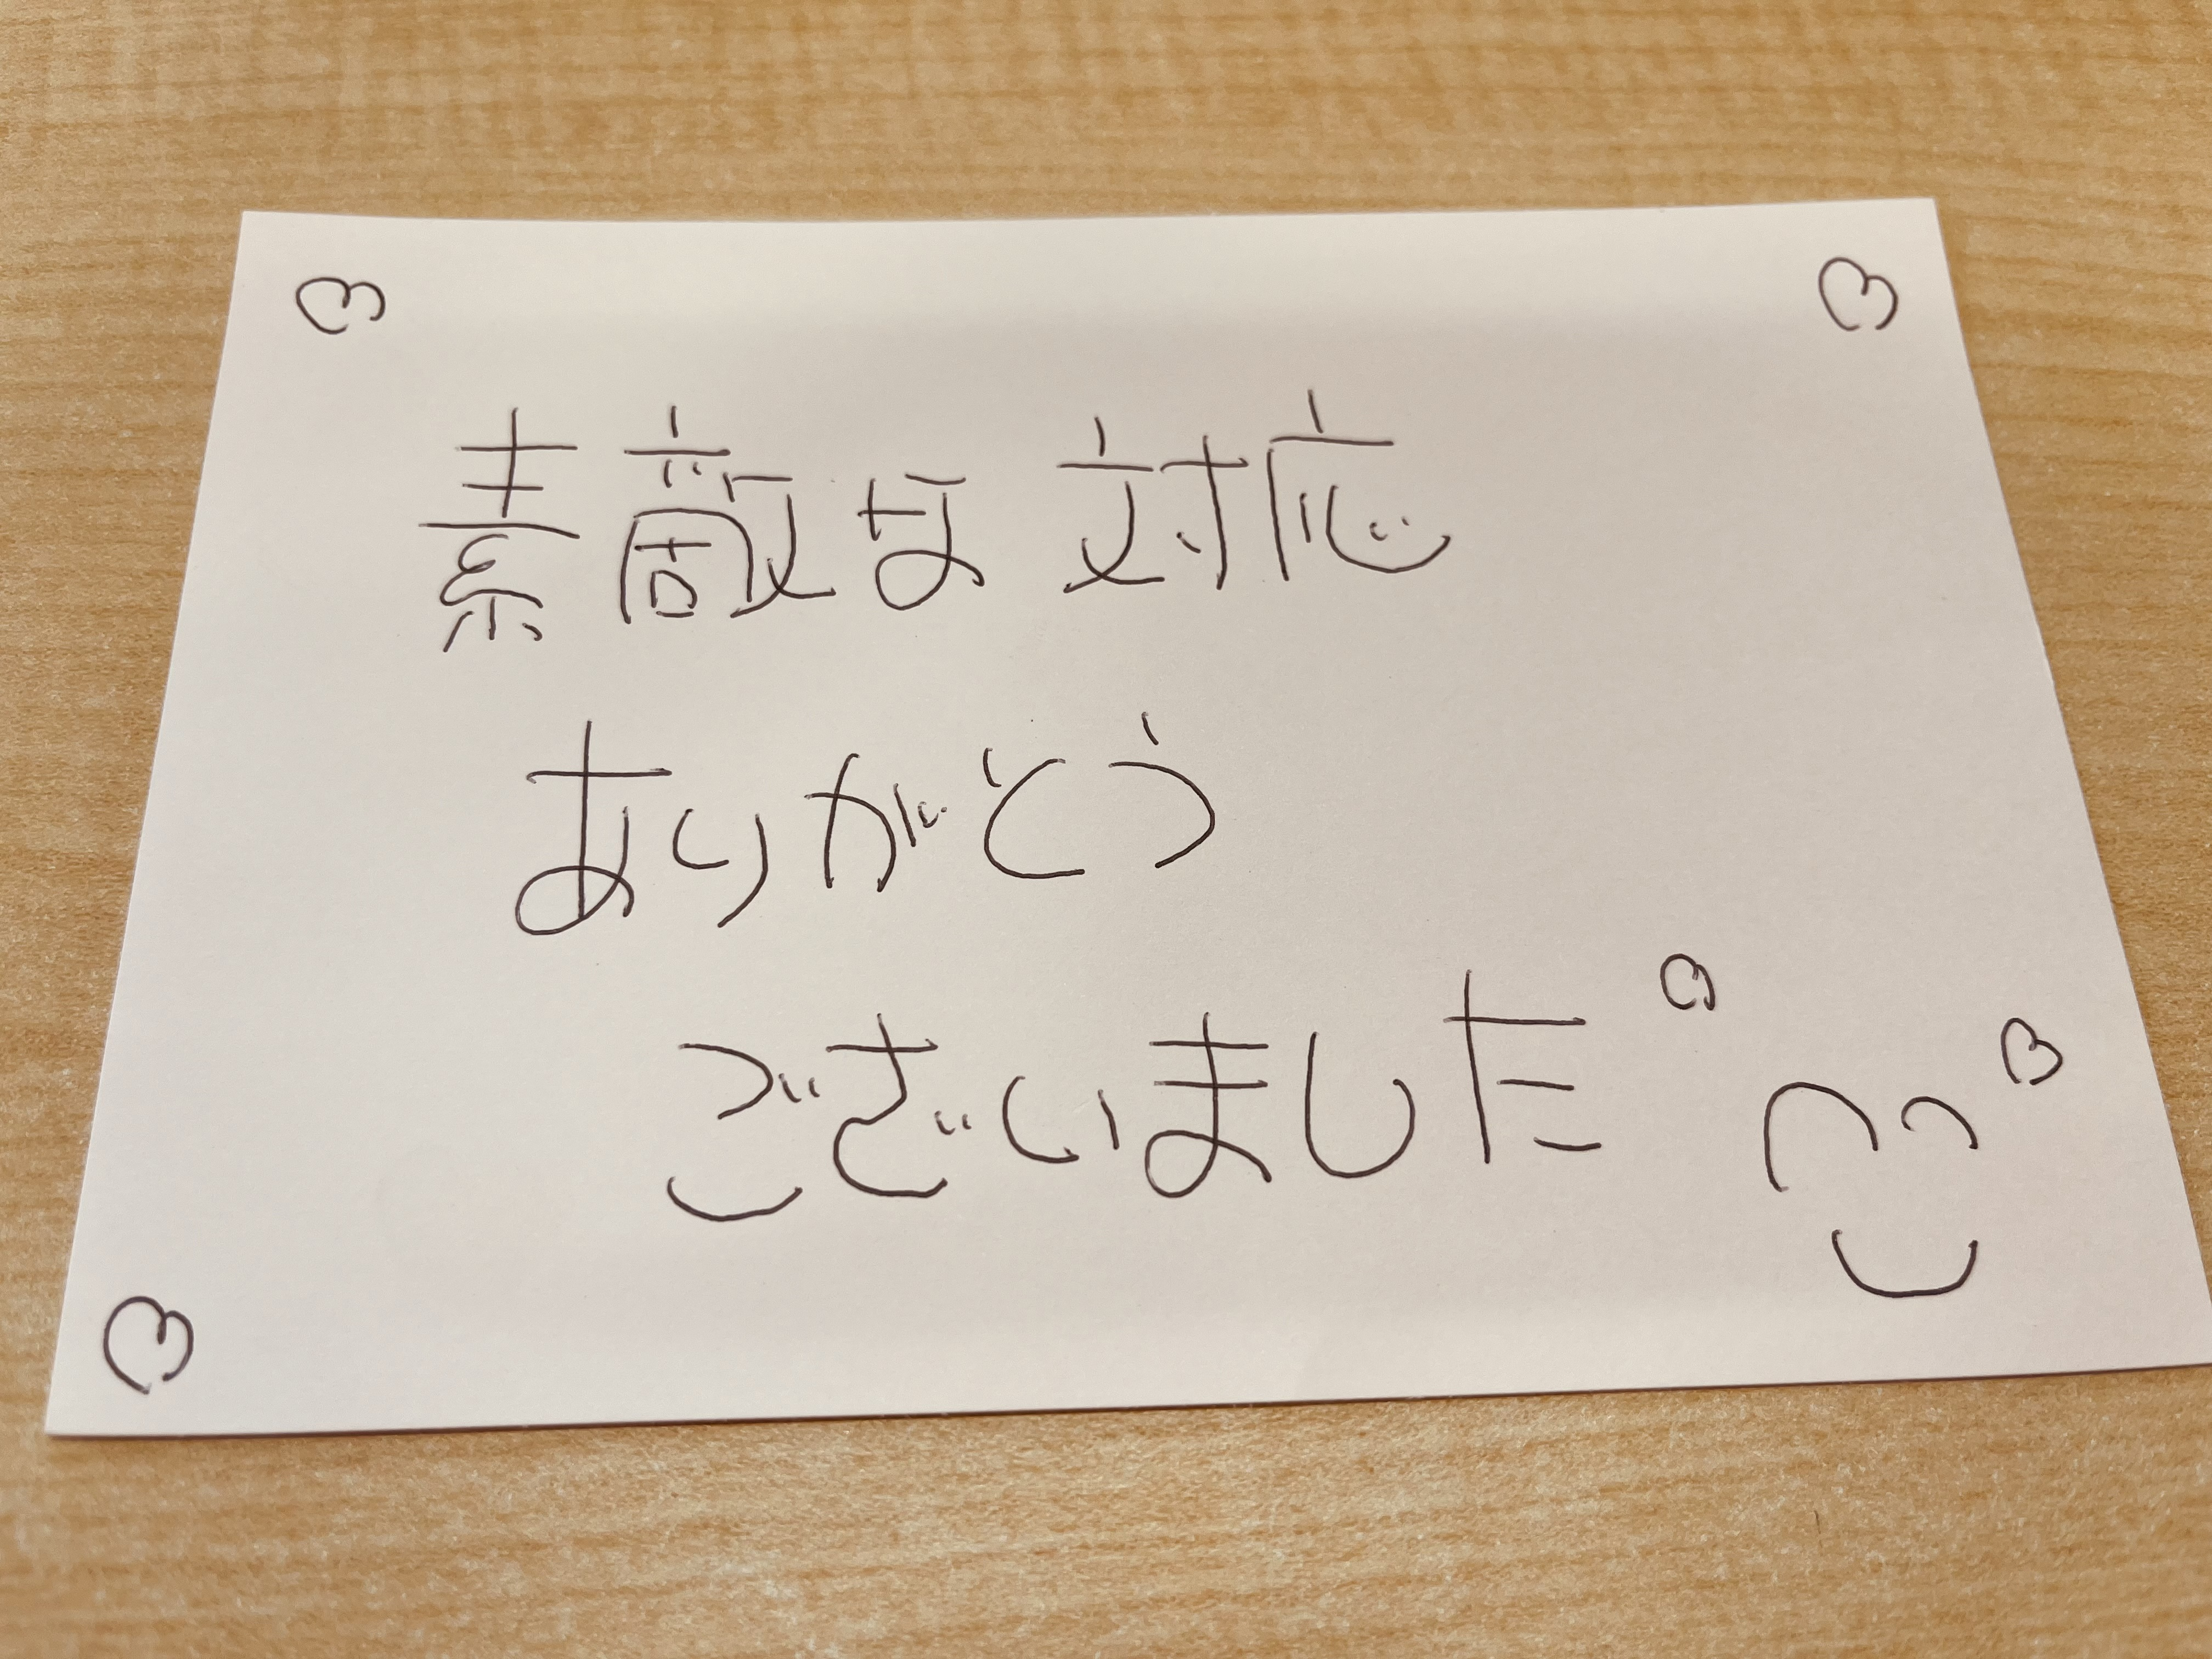 素敵な対応
ありがとう
ございました